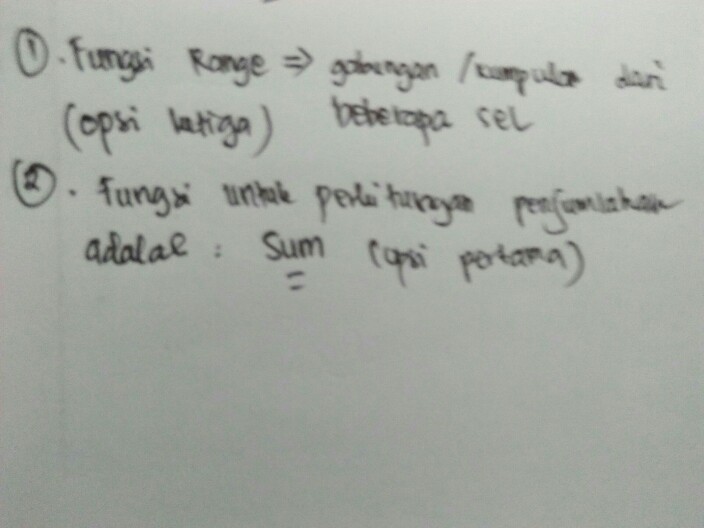 ①. Fungsi Range => gabungan / kumpulan dari
(opsi ketiga) beberapa sel
②. Fungsi untuk perhitungan penjumlahan
adalah : Sum (opsi pertama)